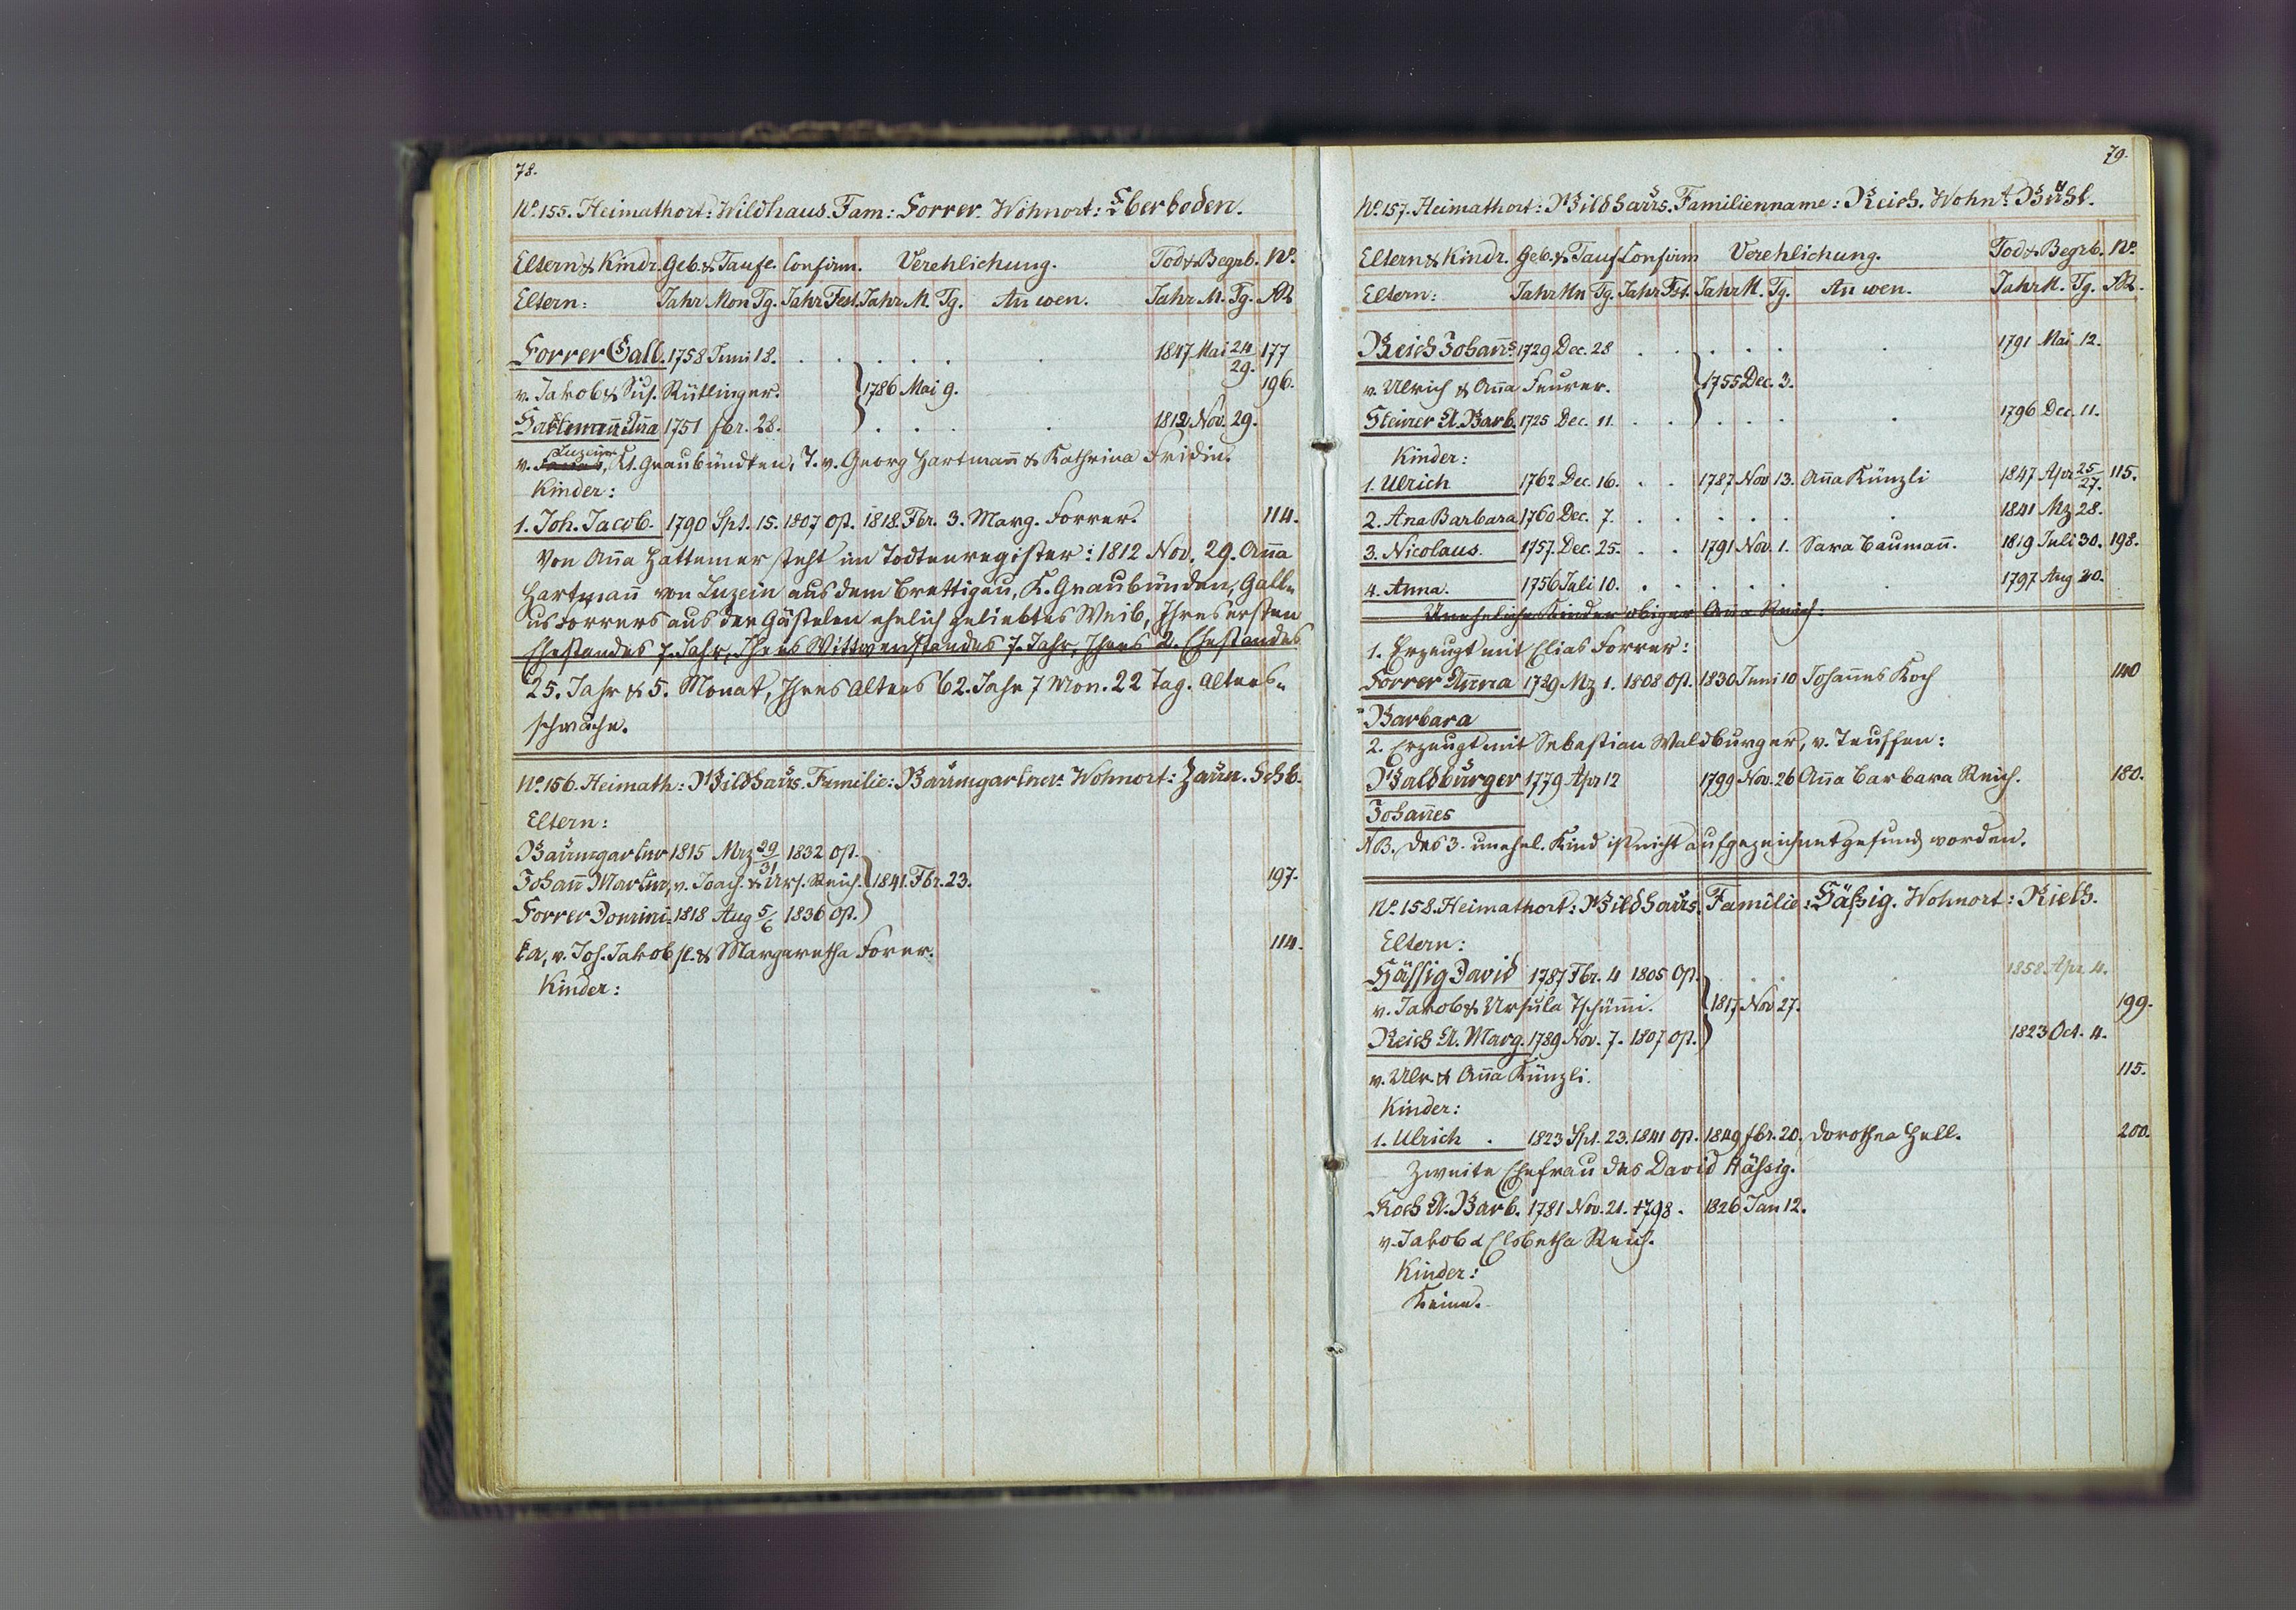 78.
No. 155. Heimathort: Wildhaus. Fam: Forrer. Wohnort: Eberboden.
Eltern & Kindr. Geb. & Taufe. Confirm. Verehlichung. Tod & Begrb. No.
Eltern: Jahr Mon Tg. Jahr Fest. Jahr M. Tg. An wen. Jahr M. Tg.
Forrer Gall. 1758 Juni 18. 1847 Mai 24/29. 177
v. Jakob & Sus. Rütlinger. 1786 Mai 9. 196.
1751 fbr. 28. 1812 Nov. 29.
v. Luzein, Kt. Graubündten, T. v. Georg Hartmann & Kathrina Fridin.
Kinder:
1. Joh. Jacob. 1790 Spt. 15. 1807 Ost. 1818. Fbr. 3. Marg. Forrer. 114.
Von Anna Hattemer steht im Todtenregister: 1812 Nov. 29. Anna
Hartmann von Luzein aus dem Brettigäu, K. Graubünden, Gall-
us Forrers aus der Gästelen ehelich geliebtes Weib, Ihres ersten
Ehestandes 7. Jahr, Ihres Wittwenstandes 7. Jahr, Ihres 2. Ehestandes
25. Jahr & 5. Monat, Ihres Alters 62. Jahr 7 Mon. 22 Tag. Alters-
schwäche.
No. 156. Heimath: Wildhaus. Familie: Baumgartner. Wohnort: Zaun. Schb.
Eltern:
Baumgartnr 1815 Mrz 29/31 1832 Ost.
Johann Martin, v. Joach. & Urs. Reich. 1841. Fbr. 23. 197.
Forrer Domini- 1818 Aug 5/6 1836 Ost.
ka, v. Joh. Jakob sl. & Margaretha Forer. 114.
Kinder:
79.
No. 157. Heimathort: Wildhaus. Familienname: Reich. Wohnt. Bühl.
Eltern & Kindr. Geb. & Tauf Confirm Verehlichung. Tod & Begrb. No.
Eltern: Jahr Mn Tg. Jahr Fst. Jahr M. Tg. An wen. Jahr M. Tg.
Reich Johanns. 1729 Dec. 28 1791 Mai 12.
v. Ulrich & Anna Feurer. 1755 Dec. 3.
Steiner A. Barb. 1725 Dec. 11. 1796 Dec. 11.
Kinder:
1. Ulrich 1762 Dec. 16. 1787 Nov 13. Anna Künzli 1847 Apr 25/27. 115.
2. Ana Barbara 1760 Dec. 7. 1841 Mz 28.
3. Nicolaus. 1757. Dec. 25. 1791 Nov. 1. Sara Baumann. 1819 Juli 30. 198.
4. Anna. 1756 Juli 10. 1797 Aug 20.
Uneheliche Kinder obiger Anna Reich:
1. Erzeugt mit Elias Forrer:
Forrer Anna 1789 Mz 1. 1808 Ost. 1830 Juni 10 Johannes Koch 140
Barbara
2. Erzeugt mit Sebastian Waldburger, v. Teuffen:
Waldburger 1779 Apr 12 1799 Nov. 26 Anna Barbara Reich. 180.
Johannes
NB. Das 3. unehel. Kind ist nicht aufgezeichnet gefund worden.
No. 158. Heimathort: Wildhaus. Familie: Hässig. Wohnort: Rieth.
Eltern:
Hässig David 1787 Fbr. 4 1805 Ost. 1858. Apr. 4.
v. Jakob & Ursula Tschümi. 1817 Nov 27. 199.
Reich A. Marg. 1789 Nov. 7. 1807 Ost. 1823 Oct. 4.
v. Ulr. & Anna Künzli. 115.
Kinder:
1. Ulrich. 1823 Spt. 23. 1841 Ost. 1849 fbr. 20. Dorothea Hell. 200.
Zweite Ehefrau des David Hässig.
Koch A. Barb. 1781 Nov. 21. 1798. 1826 Jan 12.
v. Jakob & Elsbetha Reich.
Kinder:
Keine.